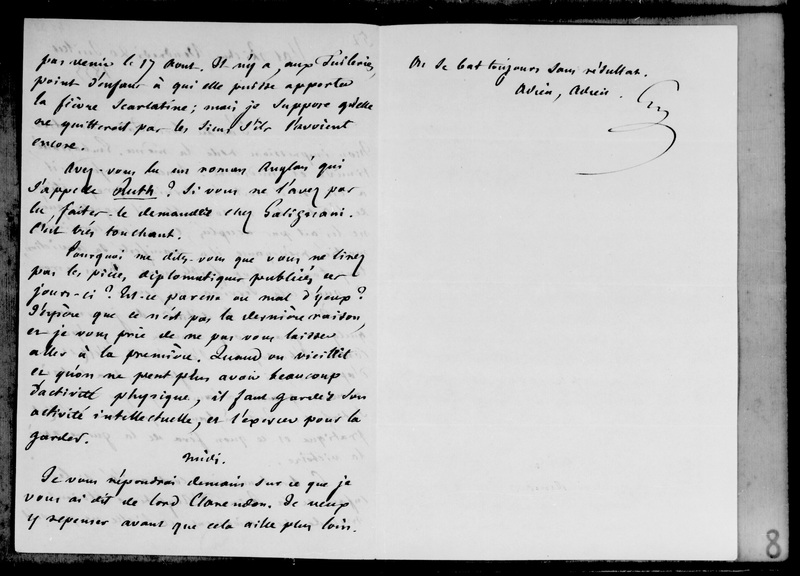 pas venir le 17 Aout. Il n'y a, aux Tuileries,
point d'enfant à qui elle puisse apporter
la fièvre Scarlatine ; mais je suppose qu'elle
ne quitteroit pas les siens s'ils l'avoient
encore.
Avez-vous lu un roman Anglais qui
s'appelle Ruth ? Si vous ne l'avez pas
lu, faites-le demander chez Galignani.
C'est très touchant.
Pourquoi me dites-vous que vous ne lirez
pas les pièces diplomatiques publiées ces
jours-ci ? Est-ce paresse ou mal d'yeux ?
J'espère que ce n'est pas la dernière raison,
et je vous prie de ne pas vous laisser
aller à la première. Quand on vieillit
et qu'on ne peut plus avoir beaucoup
d'activité physique, il faut garder son
activité intellectuelle, et l'exercer pour la
garder.
Midi.
Je vous répondrai demain sur ce que je
vous ai dit de lord Clarendon. Je veux
y repenser avant que cela aille plus loin.
On se bat toujours sans résultat.
Adieu, Adieu.
8